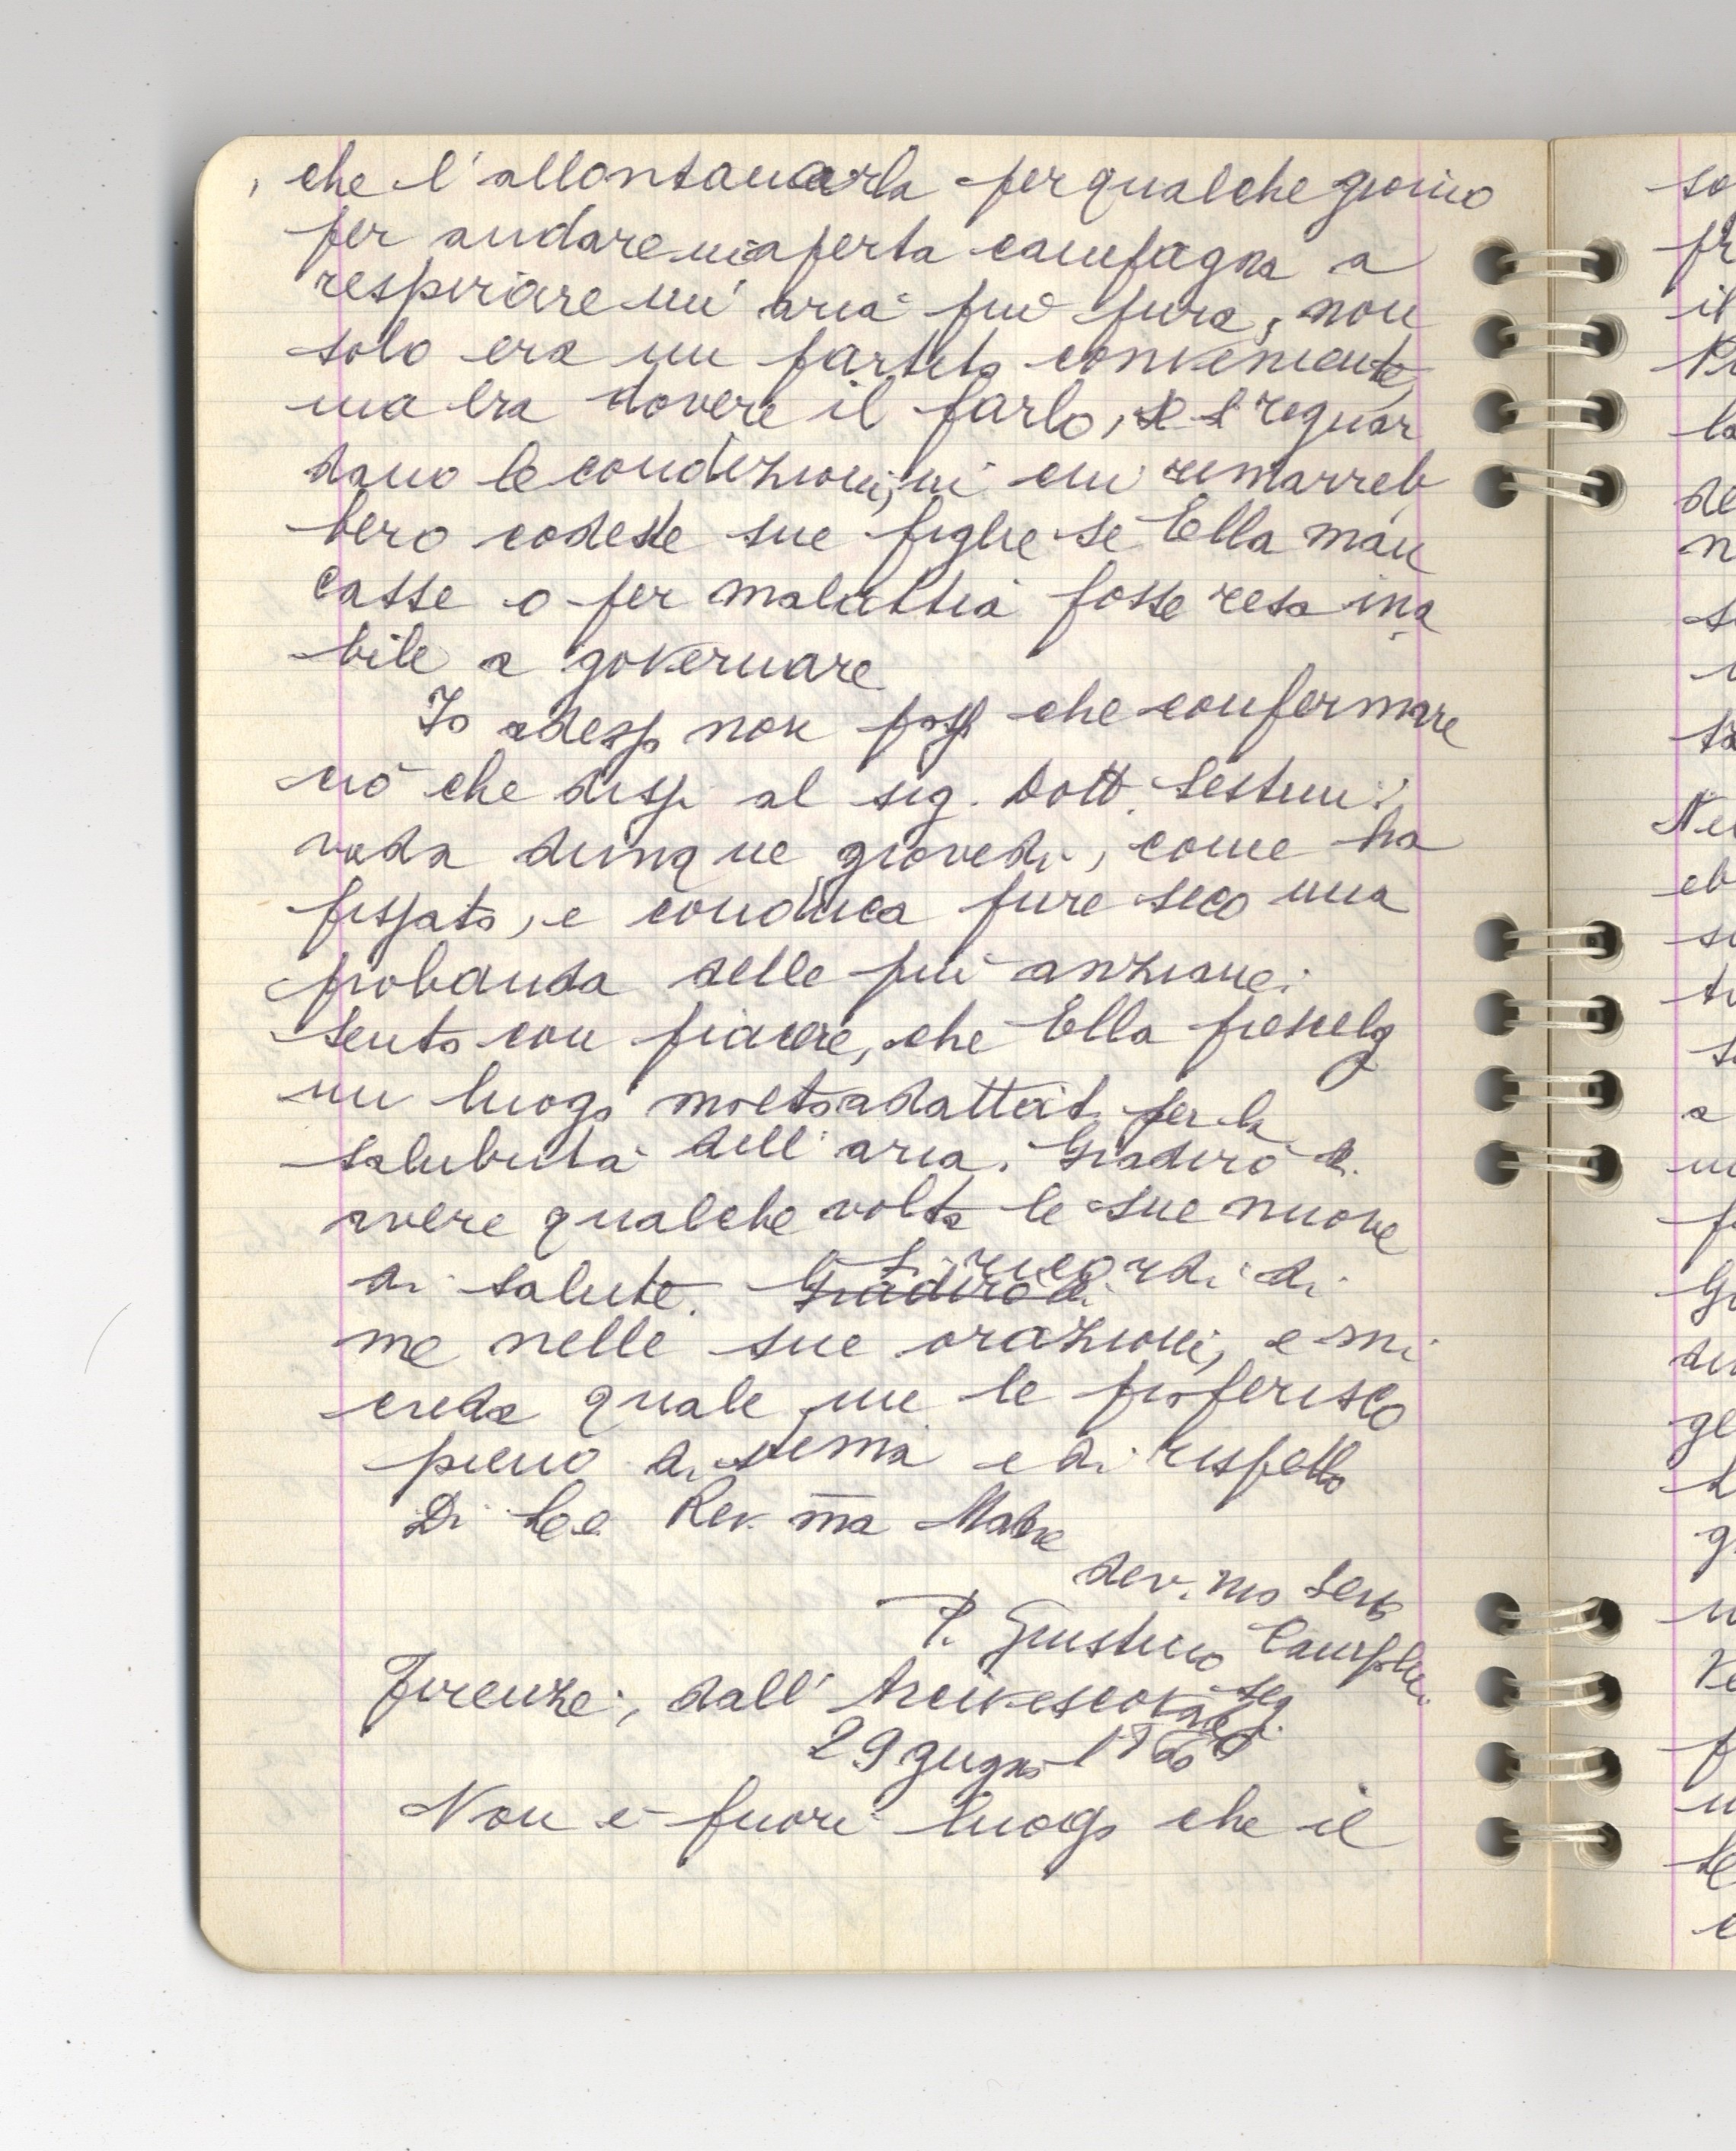 che l'allontanarla per qualche giorno
per andare in aperta campagna a
respirare un'aria più pura, non
solo era un partito conveniente,
ma era dovere il farlo, se si reguar
dano le condizioni, in cui rimarreb
bero codeste sue figlie se Ella man
casse o per malattia fosse resa ina
bile a governare
Io adesso non posso che confermare
ciò che dissi al sig. Dott. Sestini;
vada dunque giovedì, come ha
fissato, e conduca pure seco una
probanda delle più anziane:
Sento con piacere, che Ella prescelg
un luogo molto adattato per la
salubrità dell'aria. Gradirò di
avere qualche volta le sue nuove
di salute. Gradirò di Si ricordi di
me nelle sue orazioni, e mi
creda quale me le profferisco
pieno di stima e di rispetto
Di Lei Rev. ma Madre
dev. mo Serv
P. Giustino Campol
Firenze, dall' Arcivescovado seg
29 giugno
Non è fuori luogo che il
so
fr
il
la
de
n
s
Ne
eb
a
ge
g